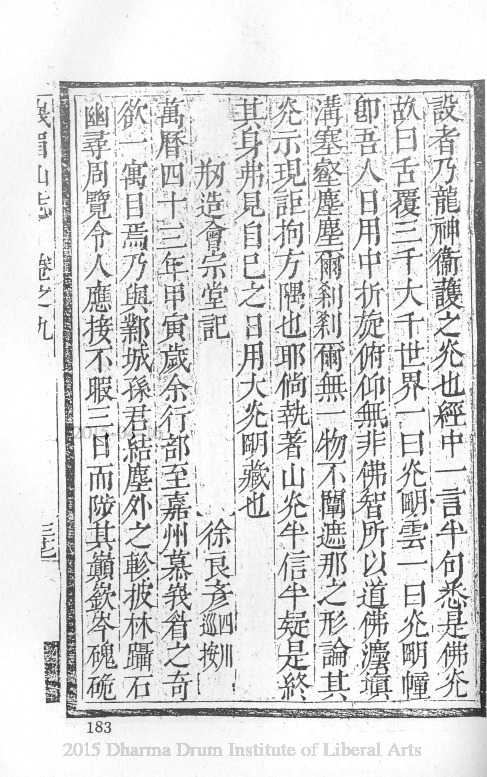 設者乃龍神衞護之灮也經中一言半句悉是佛灮
故曰舌覆三千大千世界一曰灮朙雲一曰灮朙幢
卽吾人日用中折旋俯仰無非佛智所以道佛灋塡
溝塞壑塵塵爾刹刹爾無一物不闡遮那之形論其
灮示現詎拘方隅也耶倘執著山灮半信半疑是終
其身弗見自己之日用大灮朙藏也
剏造會宗堂記 徐良彥 四川巡按
萬曆四十三年甲寅歲余行部至嘉州慕峩眉之奇
欲一寓目焉乃與鄴城孫君結塵外之軫披林躡石
幽尋周覽令人應接不暇三日而陟其巓嶔岑磈硊
峩眉山志 卷之九
183
2015 Dharma Drum Institute of Liberal Arts